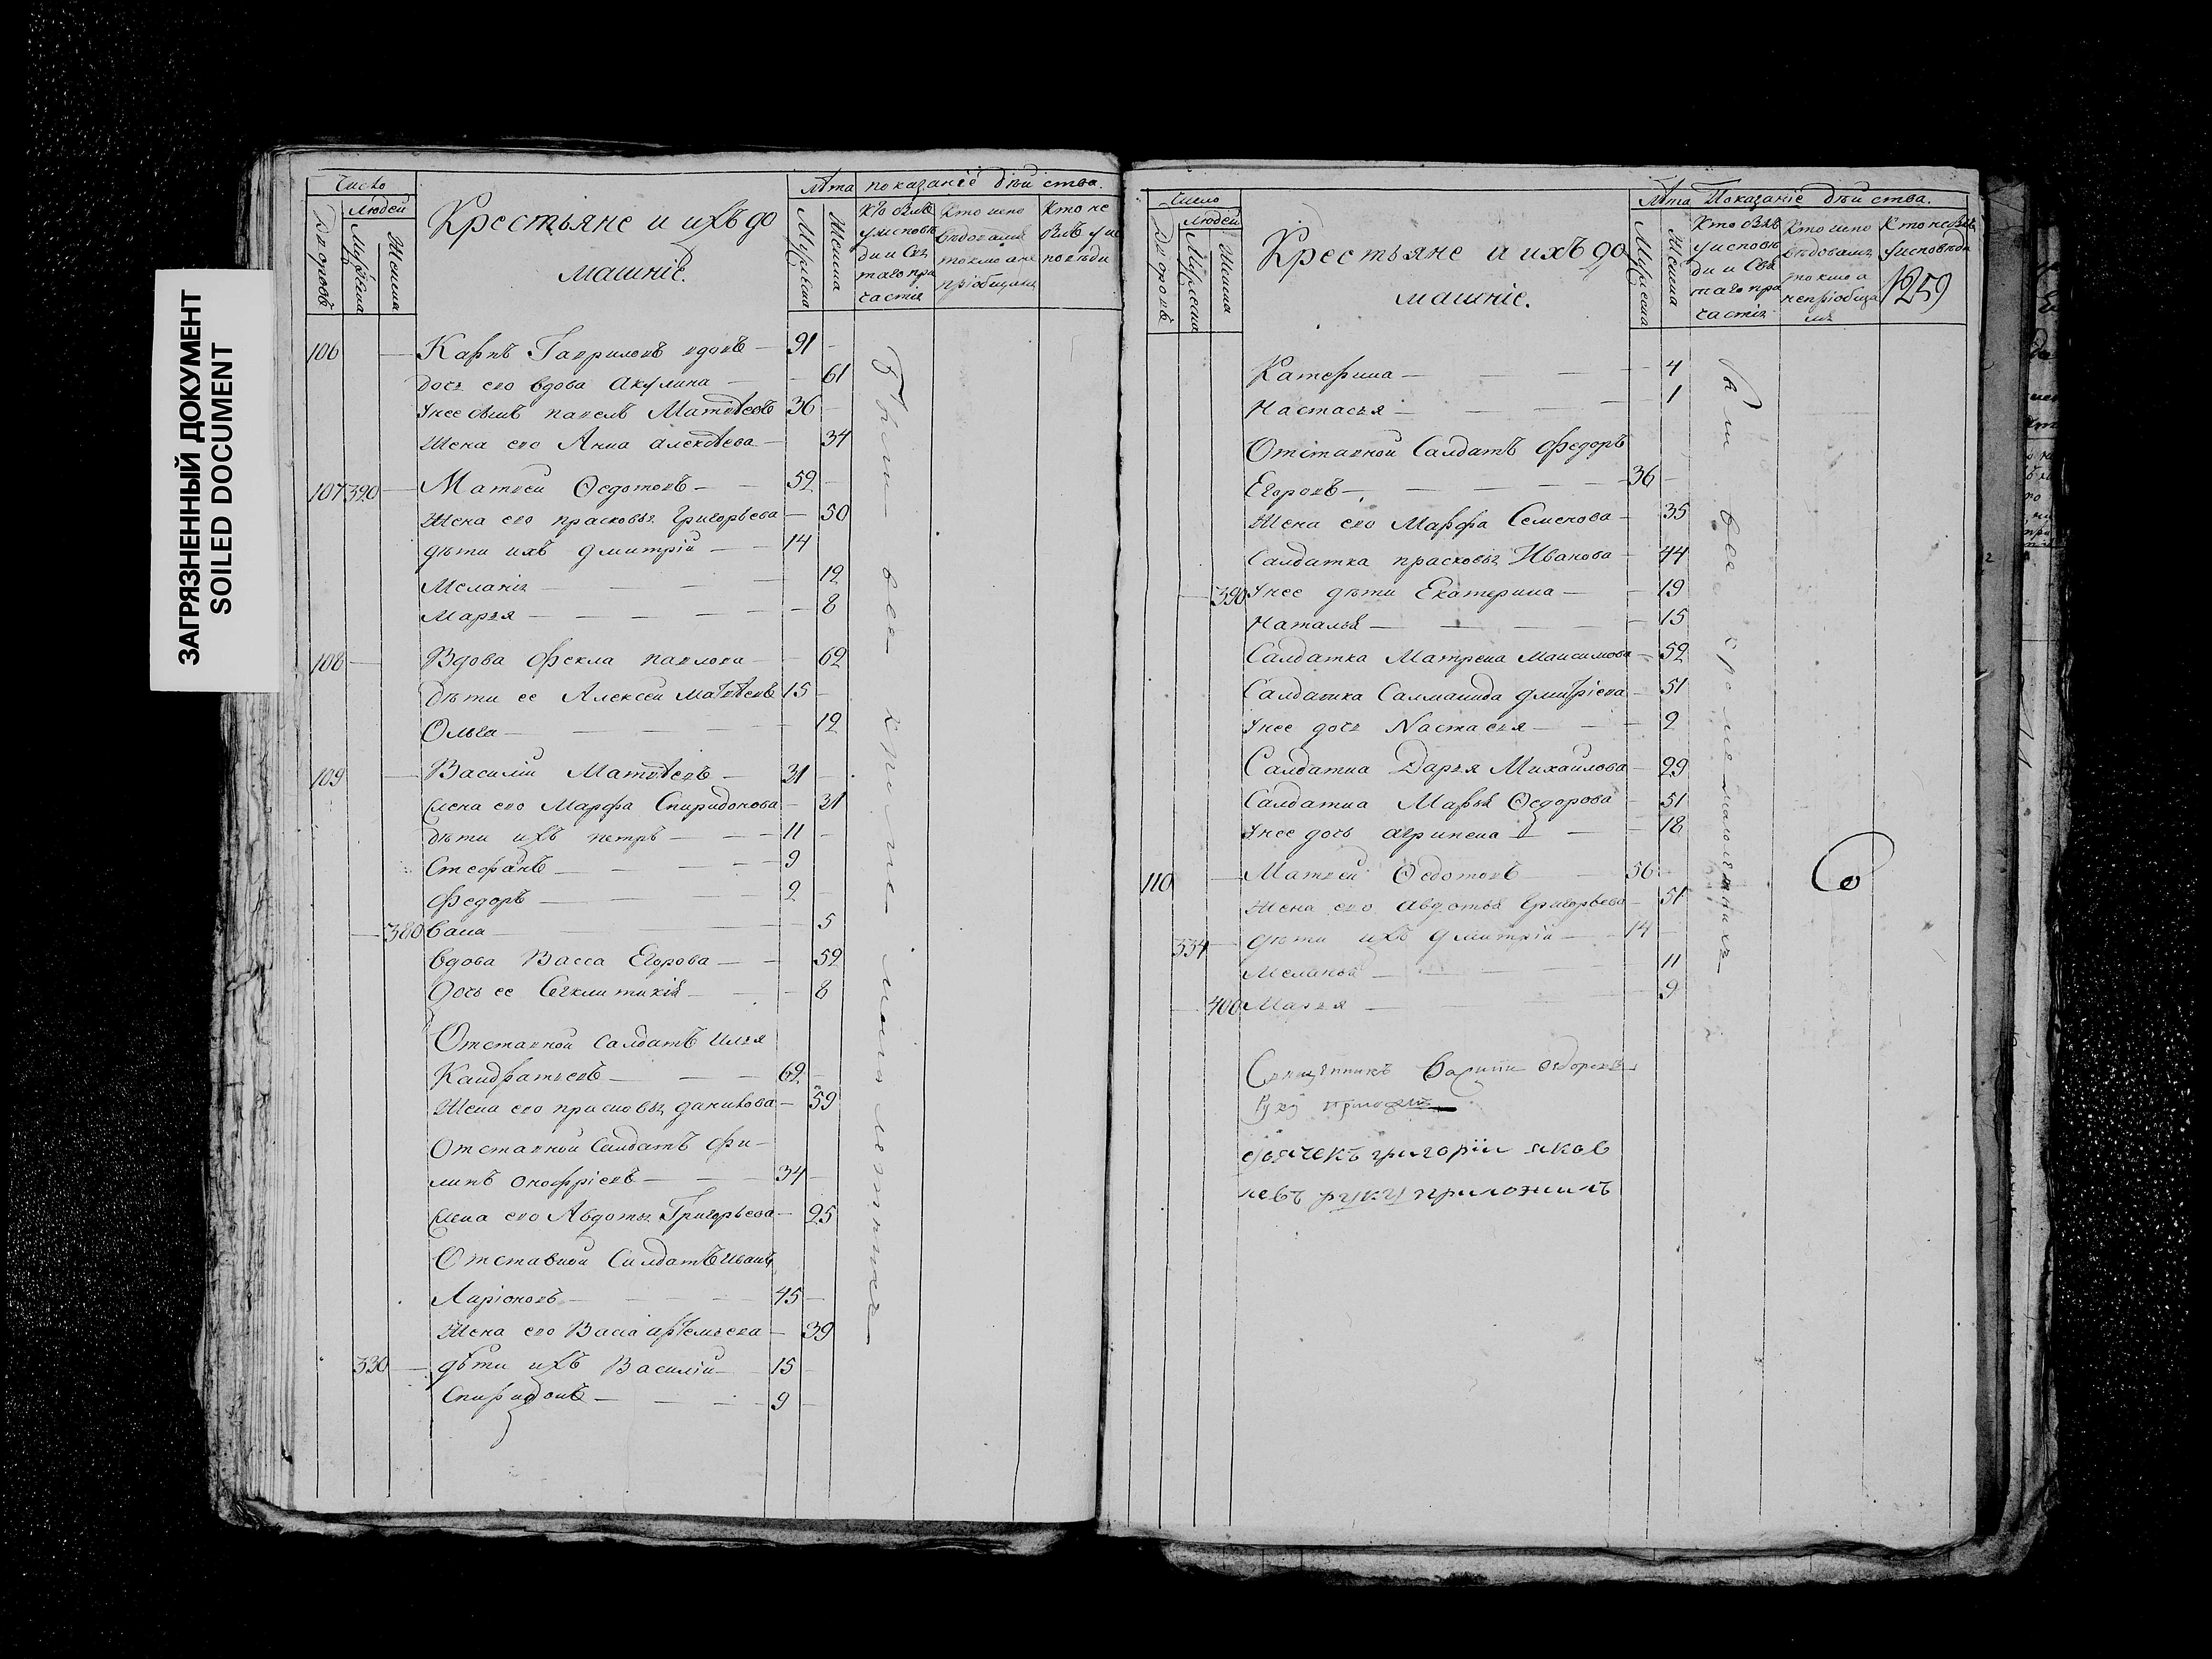 ЗАГРЯЗНЕННЫЙ ДОКУМЕНТ
SOILED DOCUMENT
Число
Людей
Дворовъ
Мужеска
Женска
Крестьяне и ихъ до
машніе.
Лѣта
Мужеска
Женска
показаніе дѣйства.
Кто былъ
у исповѣ
ди и Свя
таго при
частія
Кто испо
вѣдовался
токмо а не
пріобщался
Кто не
былъ у ис
повѣди
106 — Карпъ Гавриловъ вдовъ — 91 —
дочь его вдова Акулина — 61
У нее сынъ павелъ Матвѣевъ 36 —
Жена его Анна алексѣева — 34
107 320 — Матвеи Ѳедотовъ — 52 —
Жена его прасковья Григорьева — 50
дѣти ихъ дмитрій — 14
Меланія — 12
Марья — 8
108 — Вдова Фекла павлова — 62
Дѣти ее Алексеи Матвѣевъ 15 —
Ольга — 12
109 — Василіи Матвѣевъ — 31 —
жена его Марфа Спиридонова — 31
дѣти ихъ петръ — 11 —
Стефанъ — 9
Федоръ — 2 —
380 — 5
вдова Васса Егорова — 52
Дочь ее — 8
Отставной Салдатъ Илья
Кандратьевъ — 62 —
Жена его прасковья данилова — 59
Отставной Салдатъ Фи-
липъ Онофріевъ — 34 —
жена его Авдотья Григорьева — 25
Отставной Салдатъ Иванъ
Ларіоновъ — 45 —
Жена его Васса артемьева — 39
330 — дѣти ихъ Василіи — 15 —
Спиридонъ — 9 —
Были все кроме малолетныхъ
Число
Людей
Дворовъ
Мужеска
Женска
Крестьяне и ихъ до
машніе.
Лѣта
Мужеска
Женска
Показаніе дѣйства.
Кто былъ
у исповѣ
ди и Свя
таго при
частія
Кто испо
вѣдовался
токмо а
непріобща
лся
Кто не былъ
у исповѣди
1259
Катерина — 4
Настасья — 1
Отставной Салдатъ Федоръ
Егоровъ — 36 —
Жена его Марфа Семенова — 35
Салдатка прасковья Иванова — 44
390 У нее дѣти Екатерина — 19
Наталья — 15
Салдатка Матрена Максимова — 52
Салдатка Саламанида дмитріева — 51
У нее дочь Настасья — 2
Салдатка Дарья Михаилова — 29
Салдатка Марья Ѳедорова — 51
У нее дочь агрипена — 18
110 — Матвеи Ѳедотовъ — 56 —
Жена его авдотья Григорьева — 51
334 — дѣти ихъ дмитріи — 14 —
Меланья — 11
400 Марья — 9
Были все кроме малолѣтнихъ
Священникъ Василіи Ѳедоровъ
руку приложилъ
дьячекъ григоріи яков
левъ руку приложилъ